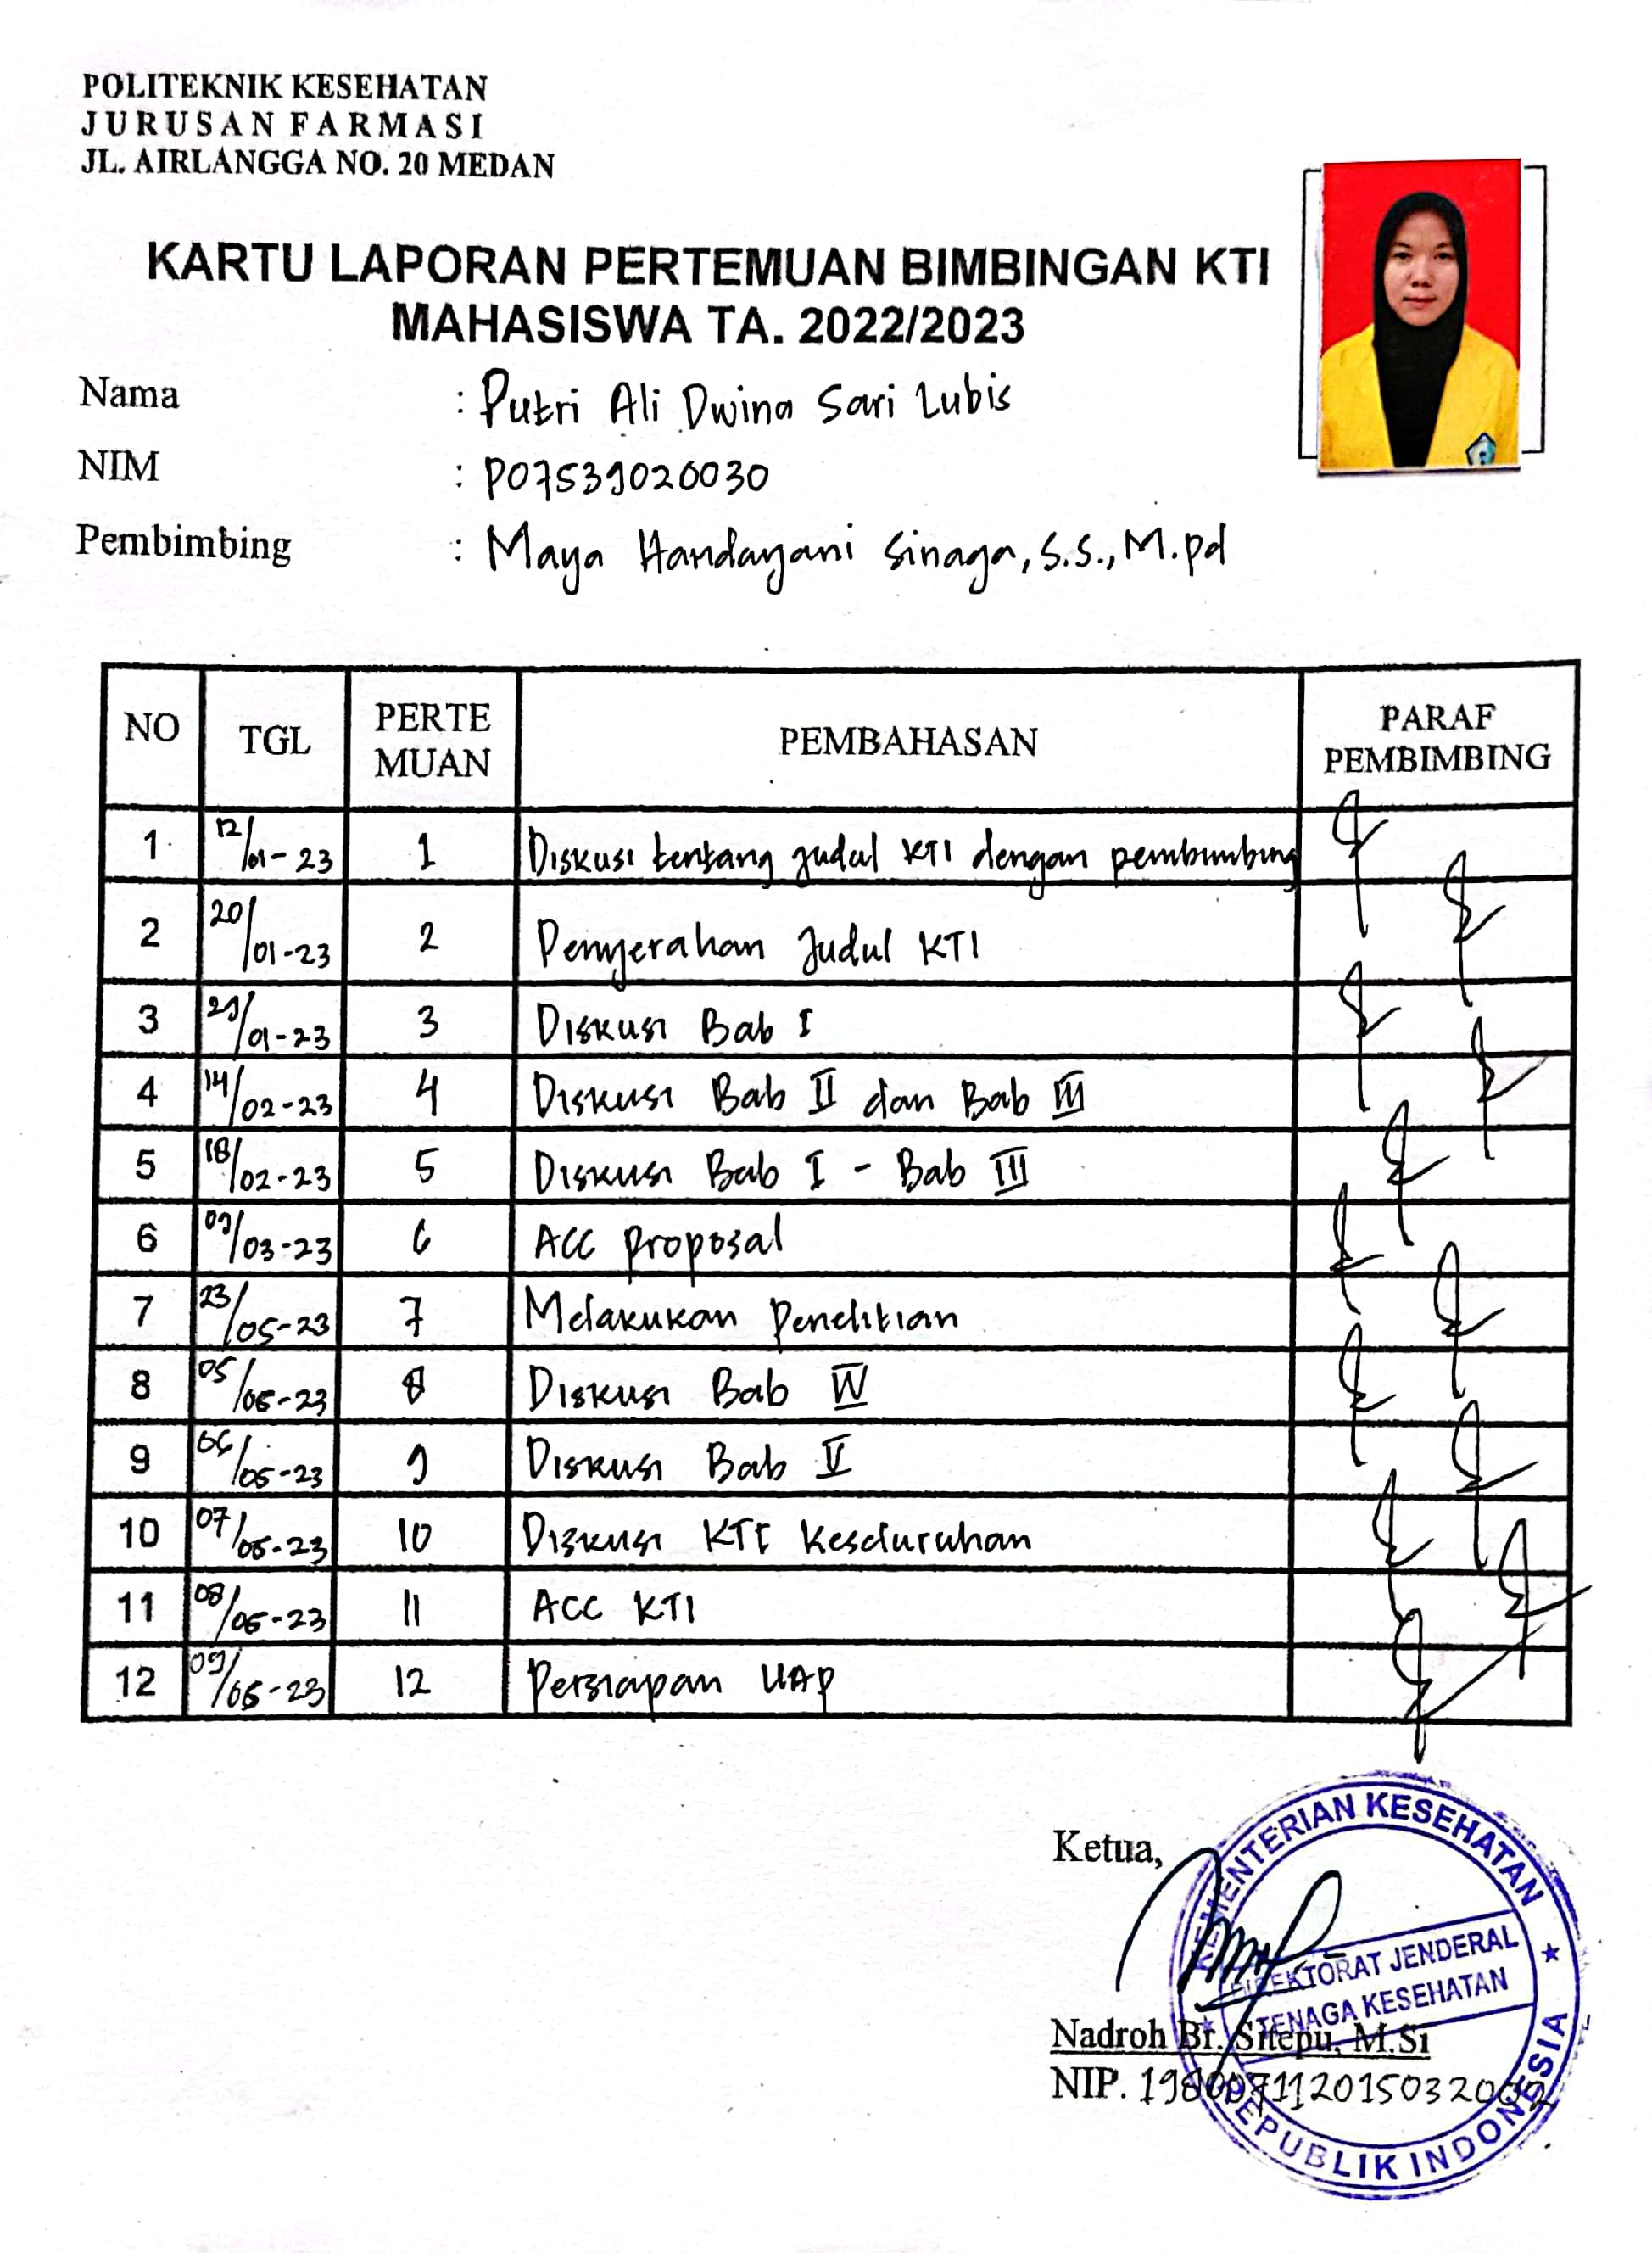 POLITEKNIK KESEHATAN
JURUSAN FARMASI
JL. AIRLANGGA NO. 20 MEDAN
KARTU LAPORAN PERTEMUAN BIMBINGAN KTI
MAHASISWA TA. 2022/2023
Nama : Putri Ali Dwina Sari Lubis
NIM : P07539020030
Pembimbing : Maya Handayani Sinaga, S.S., M.pd
NO TGL PERTE MUAN PEMBAHASAN PARAF PEMBIMBING
1 12/01-23 1 Diskusi tentang judul KTI dengan pembimbing
2 20/01-23 2 Penyerahan Judul KTI
3 29/01-23 3 Diskusi Bab I
4 14/02-23 4 Diskusi Bab II dan Bab III
5 18/02-23 5 Diskusi Bab I - Bab III
6 09/03-23 6 ACC proposal
7 23/05-23 7 Melakukan Penelitian
8 05/06-23 8 Diskusi Bab IV
9 06/06-23 9 Diskusi Bab V
10 07/06-23 10 Diskusi KTI Keseluruhan
11 08/06-23 11 ACC KTI
12 09/06-23 12 Persiapan UAP
Ketua,
KEMENTERIAN KESEHATAN
DIREKTORAT JENDERAL
TENAGA KESEHATAN
REPUBLIK INDONESIA
Nadroh Br. Sitepu, M.Si
NIP. 198007112015032002